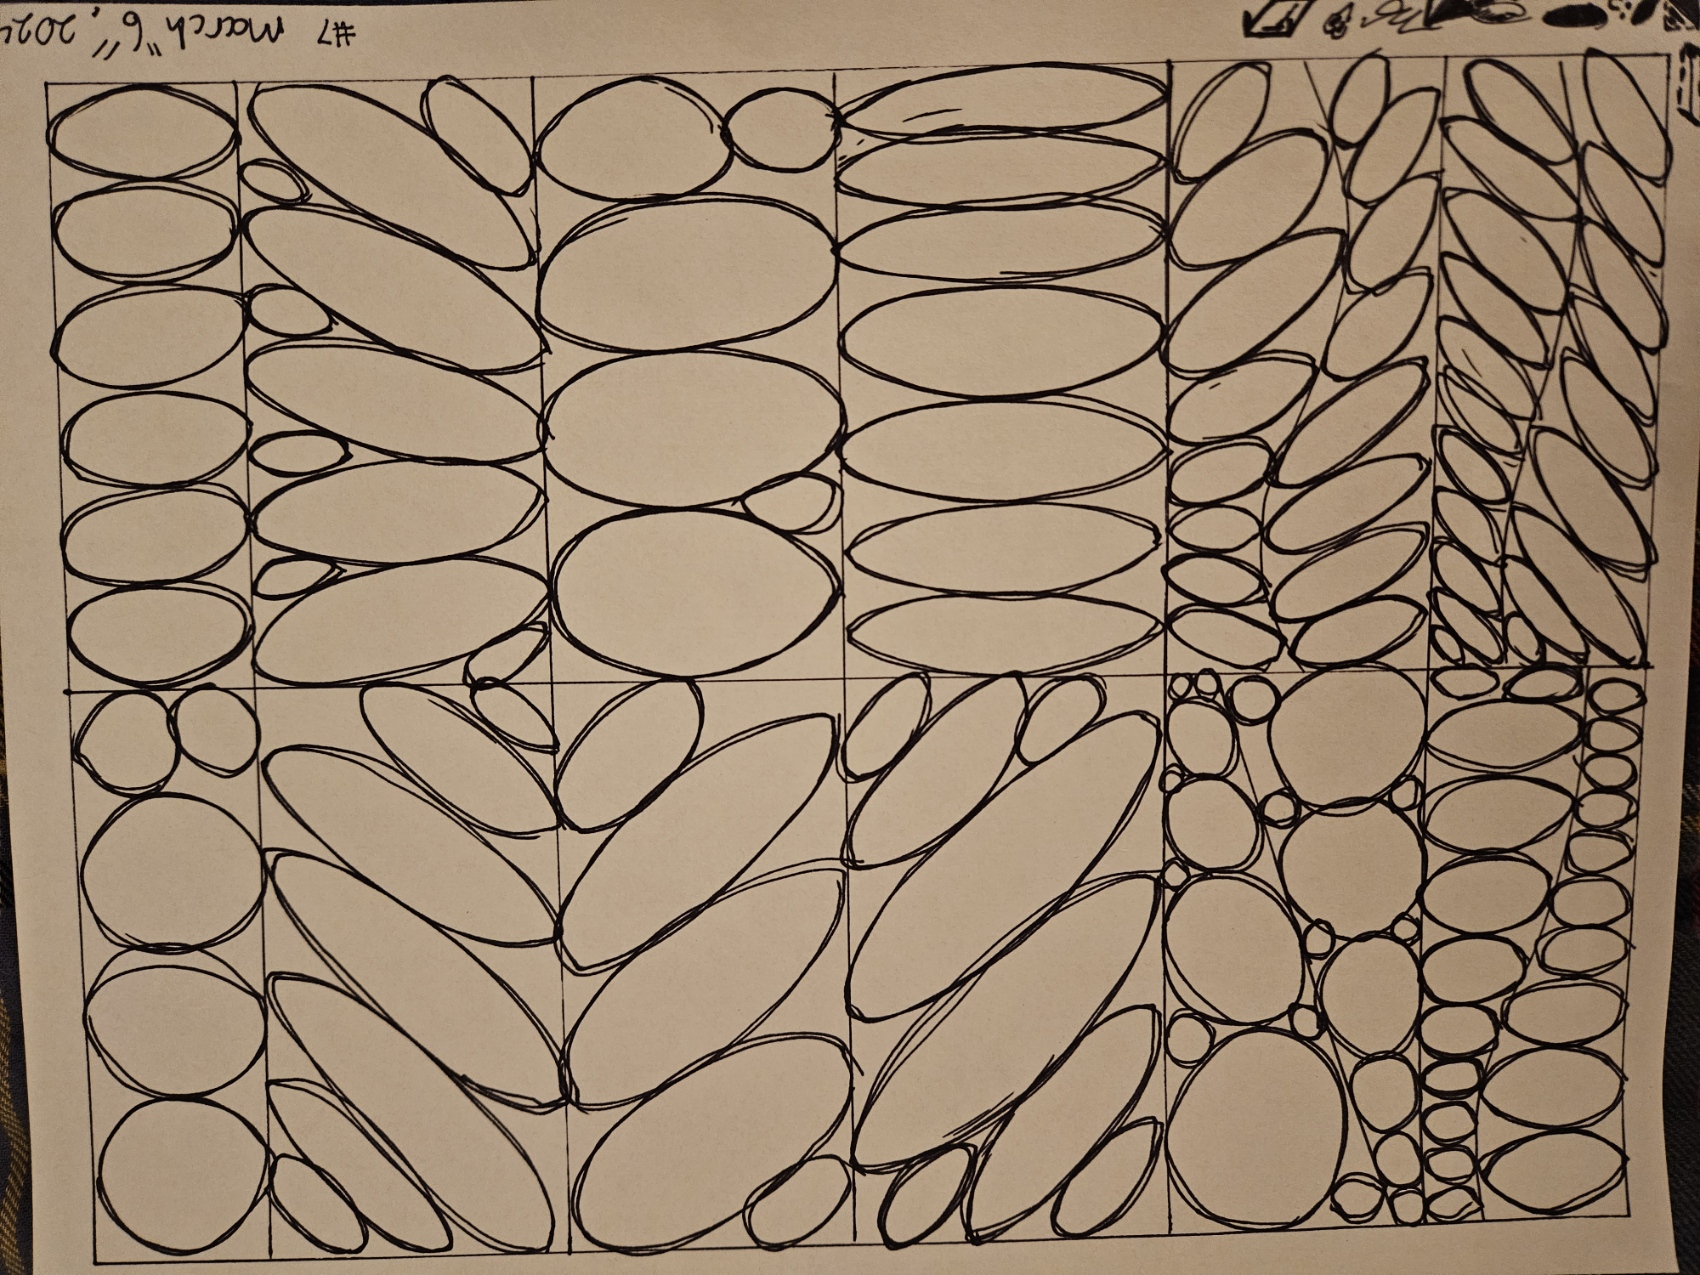 #7 march "6". 2024